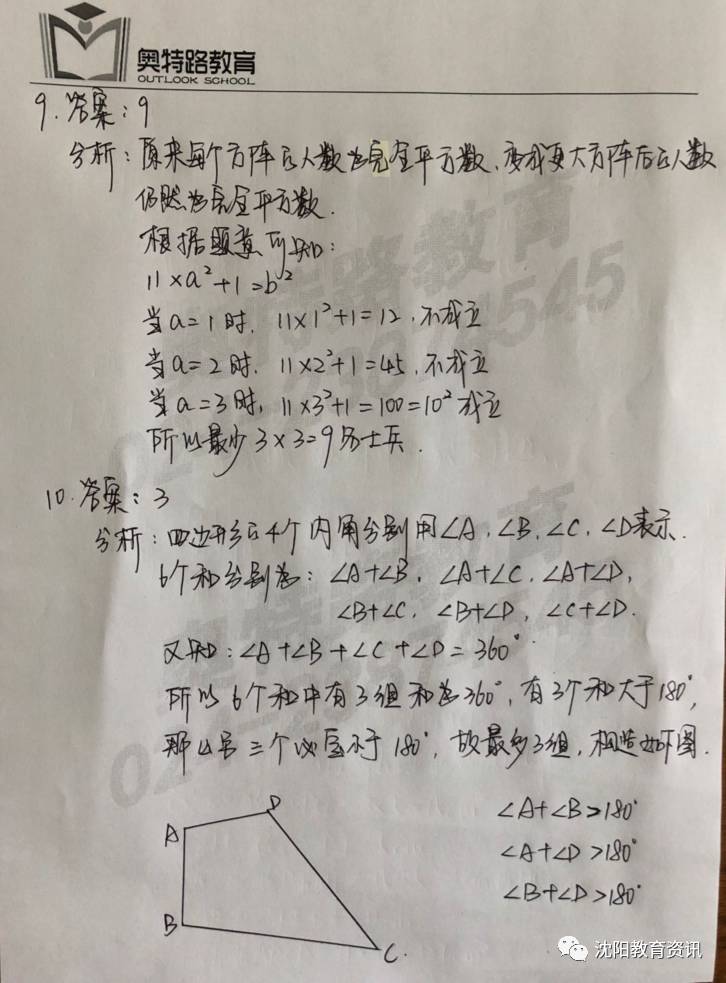 奥特路教育
OUTLOOK SCHOOL
9. 答案：9
分析：原来每个方阵的人数为完全平方数，变成更大方阵后的人数
仍然为完全平方数.
根据题意可知：
11×a²+1=b²
当a=1时，11×1²+1=12，不成立
当a=2时，11×2²+1=45，不成立
当a=3时，11×3²+1=100=10²成立
所以最少3×3=9名士兵.
10. 答案：3
分析：四边形的4个内角分别用∠A，∠B，∠C，∠D表示.
6个和分别为：∠A+∠B，∠A+∠C，∠A+∠D，
∠B+∠C，∠B+∠D，∠C+∠D.
又知：∠A+∠B+∠C+∠D=360°
所以6个和中有3组和为360°，有3个和大于180°，
那么另三个必小于180°，故最多3组，构造如下图.
∠A+∠B>180°
∠A+∠D>180°
∠B+∠D>180°
A
D
B
C.
沈阳教育资讯